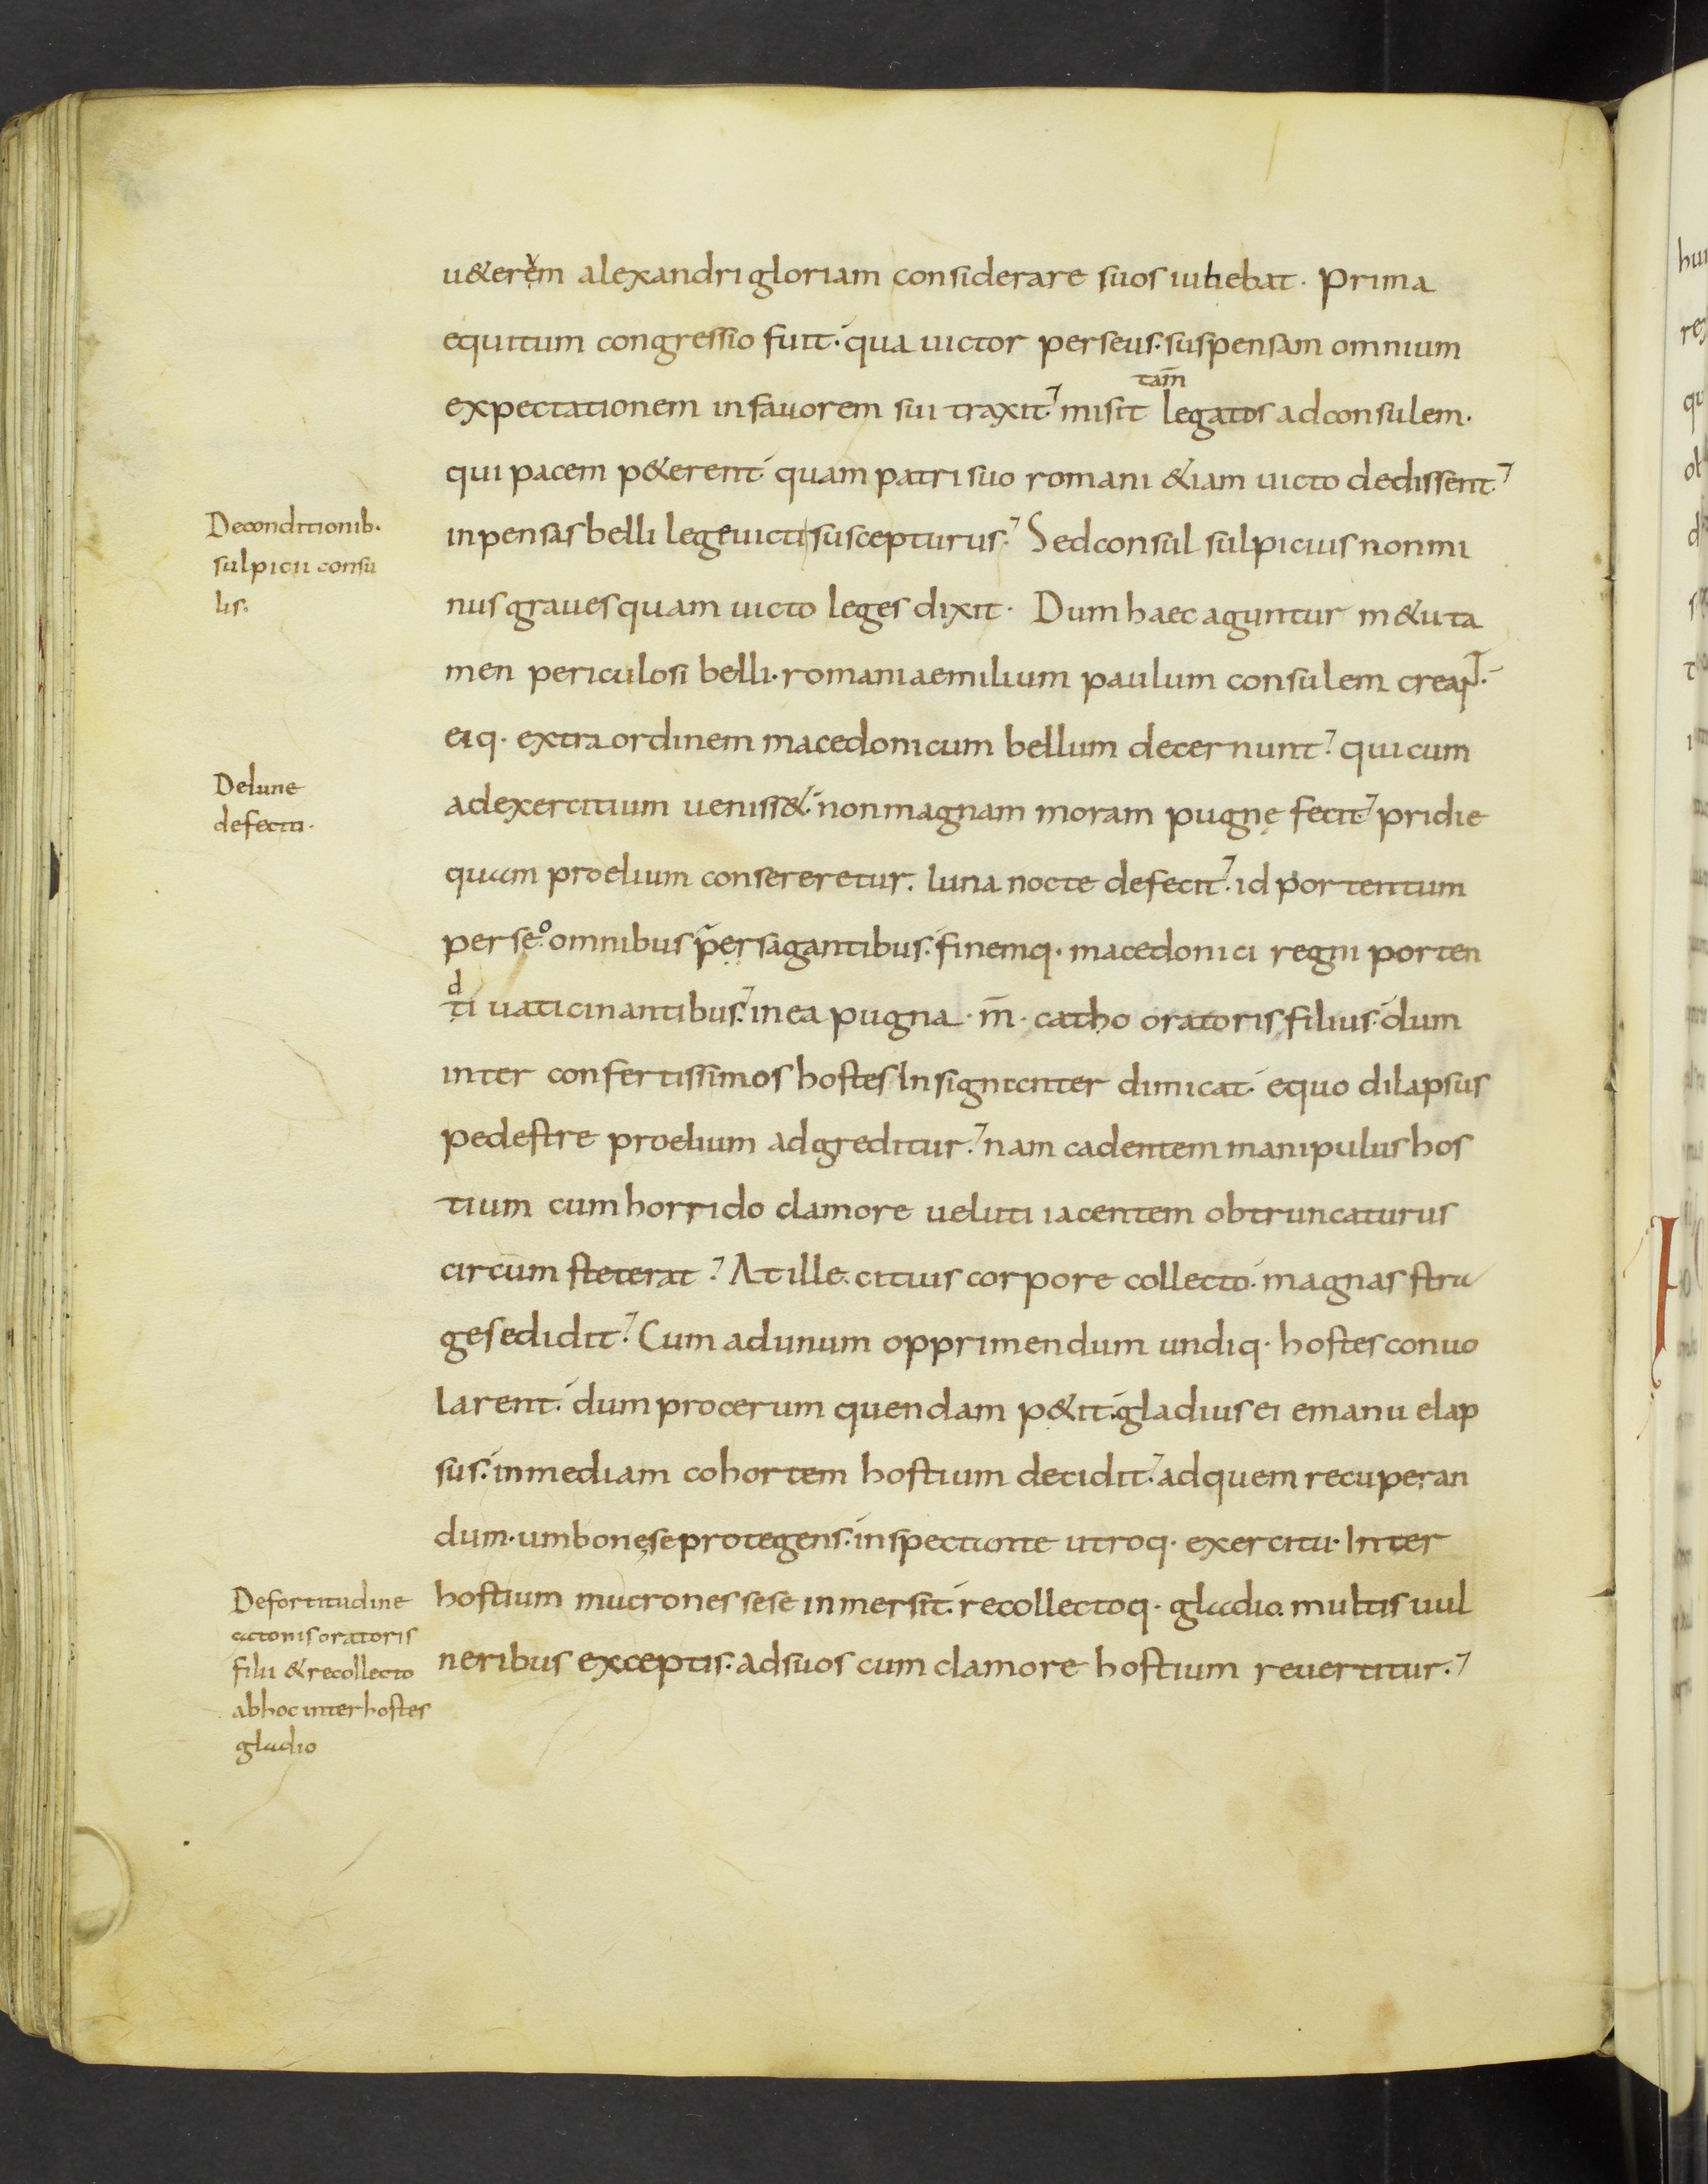 u&erem alexandri gloriam considerare suos iubebat. Prima
equitum congressio fuit. qua uictor perseus. suspensam omnium
tam̄
expectationem infauorem sui traxit. misit legatos adconsulem.
qui pacem p&erent quam patri suo romani &iam uicto dedissent.
Deconditionib.
sulpicii consu
lis.
inpensas belli lege uicti suscepturus. Sed consul sulpicius nonmi
nus graues quam uicto leges dixit. Dum haec aguntur m&u ta
men periculosi belli. romani aemilium paulum consulem creaꝶ.
eiq. extra ordinem macedonicum bellum decernunt. qui cum
Delune
defectu.
adexercitium ueniss&. non magnam moram pugnę fecit. pridie
quam proelium consereretur. luna nocte defecit. id portentum
perseo. omnibus p̄ersagantibus. finemq. macedonici regni porten
d
ti uaticinantibus. in ea pugna. m̄. catho oratoris filius. dum
inter confertissimos hostes Insignenter dimicat. equo dilapsus
pedestre proelium adgreditur. nam cadentem manipulus hos
tium cum horrido clamore ueluti iacentem obtruncaturus
circum steterat. At ille. citius corpore collecto. magnas stra
ges edidit. Cum adunum opprimendum undiq. hostes conuo
larent. dum procerum quendam p&it. gladius ei emanu elap
sus. inmediam cohortem hostium decidit. adquem recuperan
dum. umbone se protegens. inspectante utroq. exercitu. Inter
Defortitudine
catonis oratoris
filii & recollecto
abhoc inter hostes
gladio
hostium mucrones sese inmersit. recollectoq. gladio. multis uul
neribus exceptis. adsuos cum clamore hostium reuertitur.